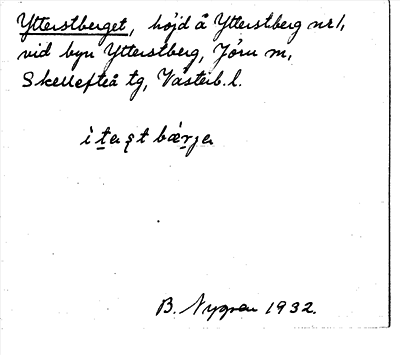 Ytterstberget, höjd å Ytterstberg nr 1,
vid byn Ytterstberg, Jörn sn,
Skellefteå tg, Västerb. l.
B. Nygren 1932.